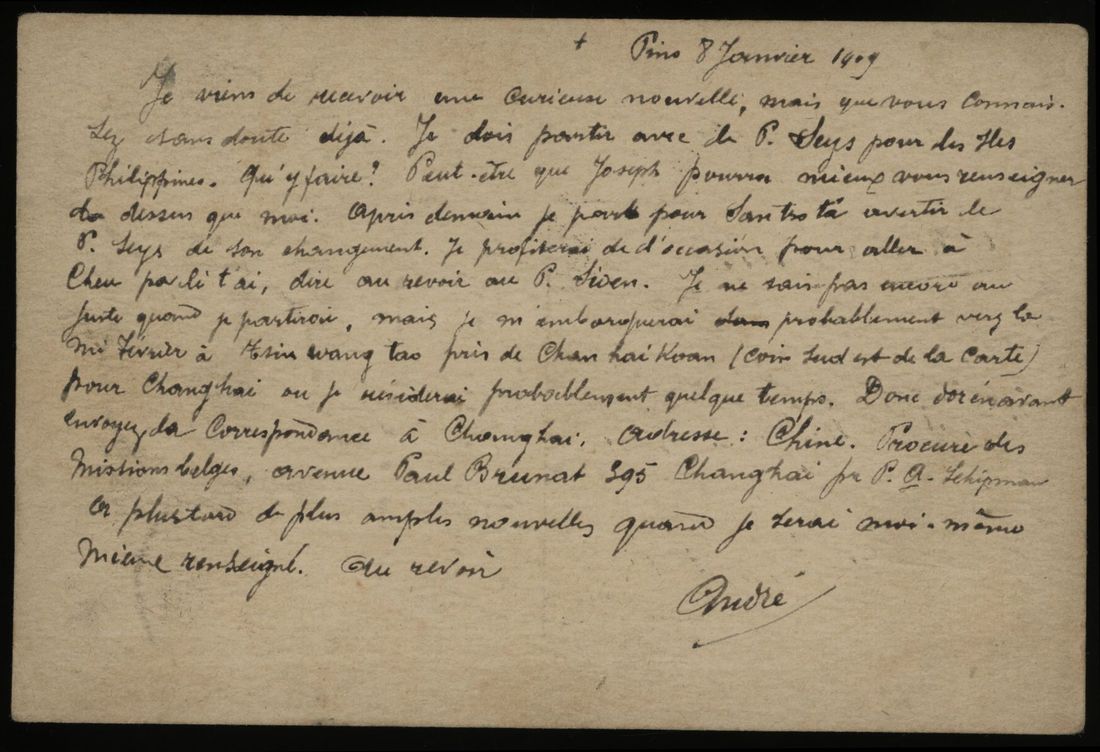 + Pino 8 Janvier 1909
Je viens de recevoir une curieuse nouvelle, mais que vous connais-
sez sans doute déjà. Je dois partir avec le P. Seys pour les Iles
Philippines. Qu'y faire? Peut-être que Joseph pourra mieux vous renseigner
là dessus que moi. Après demain je pars pour Santrota avertir le
P. Seys de son changement. Je profiterai de l'occasion pour aller à
Cheu pa li t'ai, dire au revoir au P. Siven. Je ne sais pas encore au
juste quand je partirai, mais je m'embarquerai probablement vers la
mi Février à Tsin wang tao près de Chan hai Koan (coin sud est de la carte)
pour Changhai ou je résiderai probablement quelque temps. Donc dorénavant
envoyez la correspondance à Changhai. Adresse: Chine. Procure des
Missions belges, avenue Paul Brunat 395 Changhai pr P. A. Schipman
A plus tard de plus amples nouvelles quand je serai moi-même
mieux renseigné. Au revoir
André